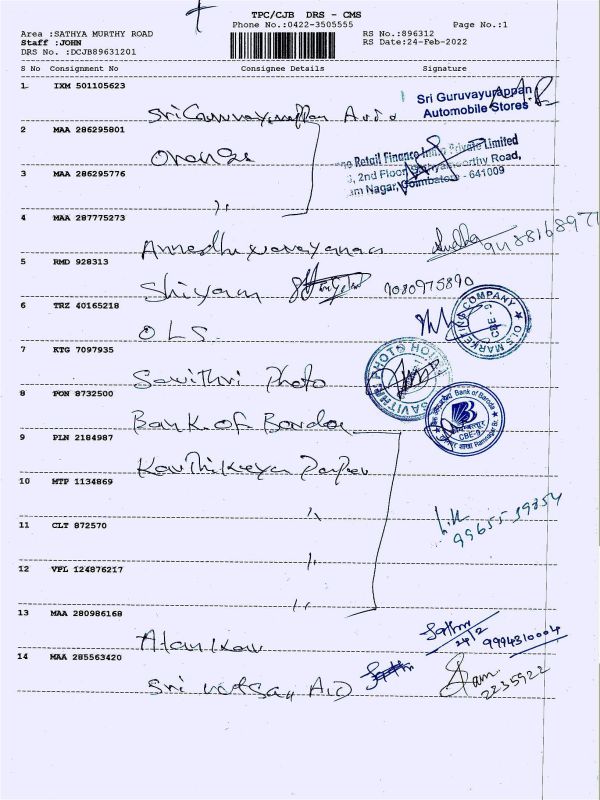 TPC/CJB DRS - CMS
Phone No.:0422-3505555 Page No.:1
Area :SATHYA MURTHY ROAD RS No.:896312
Staff :JOHN RS Date:24-Feb-2022
DRS No. :DCJB89631201
S No Consignment No Consignee Details Signature
1 IXM 501105623
Sri Guruvayurappan
Automobile Stores
Sri Guruvayurappan Auto
2 MAA 286295801
Orange
Retail Finance India Private Limited
2nd Floor, Sathyamoorthy Road,
Nagar, Coimbatore - 641009
3 MAA 286295776
4 MAA 287775273
5 RMD 928313
Shiyam 9080975890
6 TRZ 40165218
OLS
OLS MARKETING COMPANY CBE-9
7 KTG 7097935
Savithri Photo
SAVITHRI PHOTO HOUSE
8 PON 8732500
Bank of Baroda
Bank of Baroda
CBE-9
9 PLN 2184987
10 MTP 1134869
11 CLT 872570
99655-39354
12 VPL 124876217
13 MAA 280986168
24/2 9994310004
14 MAA 285563420
2235922